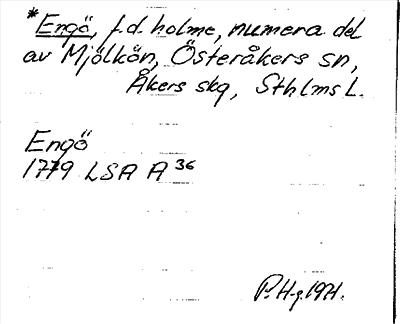 * Engö, f.d. holme, numera del
av Mjölkön, Österåkers sn,
Åkers skg, Sthlms L.
Engö
1779 LSA A 36
P. H-g. 1971.